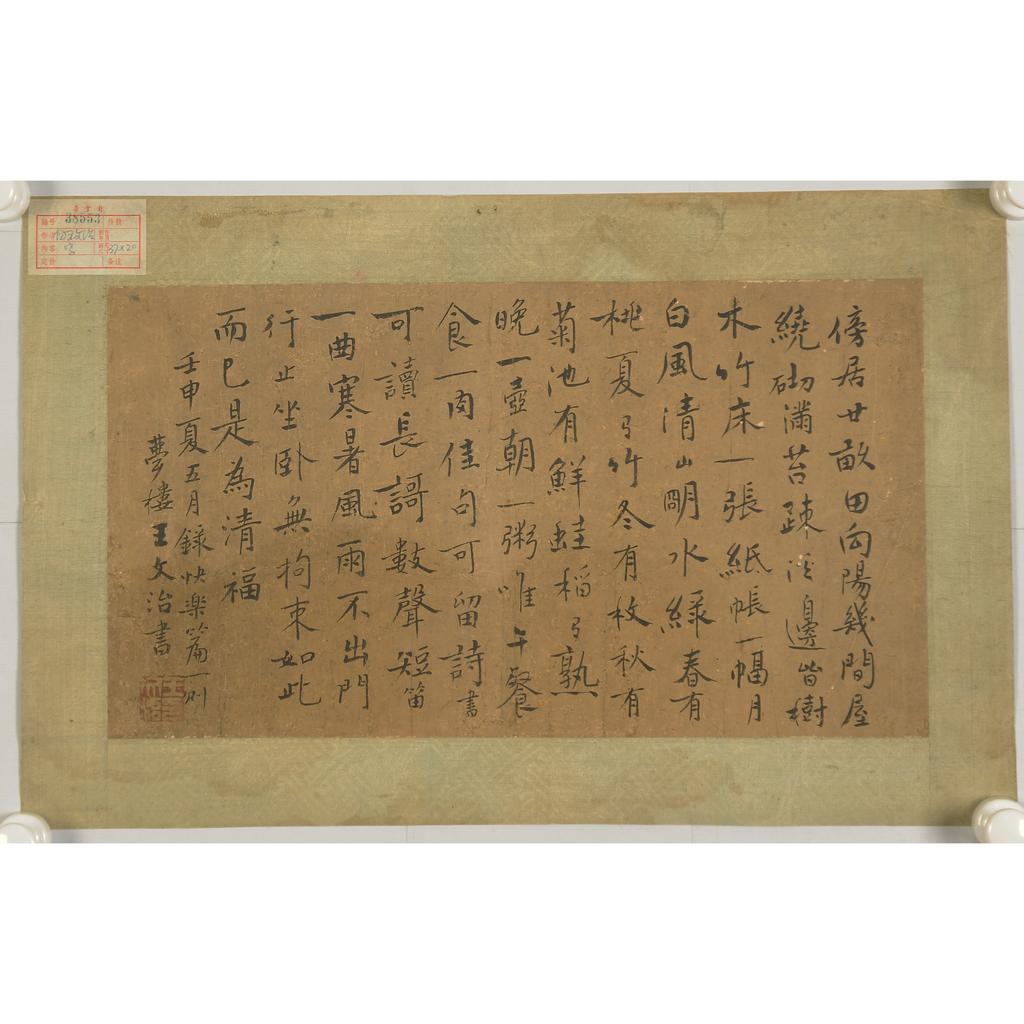 傍居廿畝田向陽幾間屋
繞砌滿苔踈沿邊皆樹
木竹床一張紙帳一幅月
白風清山明水綠春有
桃夏有竹冬有枚秋有
菊池有鮮蛙稻有熟
晚一壺朝一粥唯午餐
食一肉佳句可留詩書
可讀長謌數聲短笛
一曲寒暑風雨不出門
行止坐卧無拘束如此
而已是為清福
壬申夏五月錄快樂篇一則
夢樓王文治書
38553
37×20